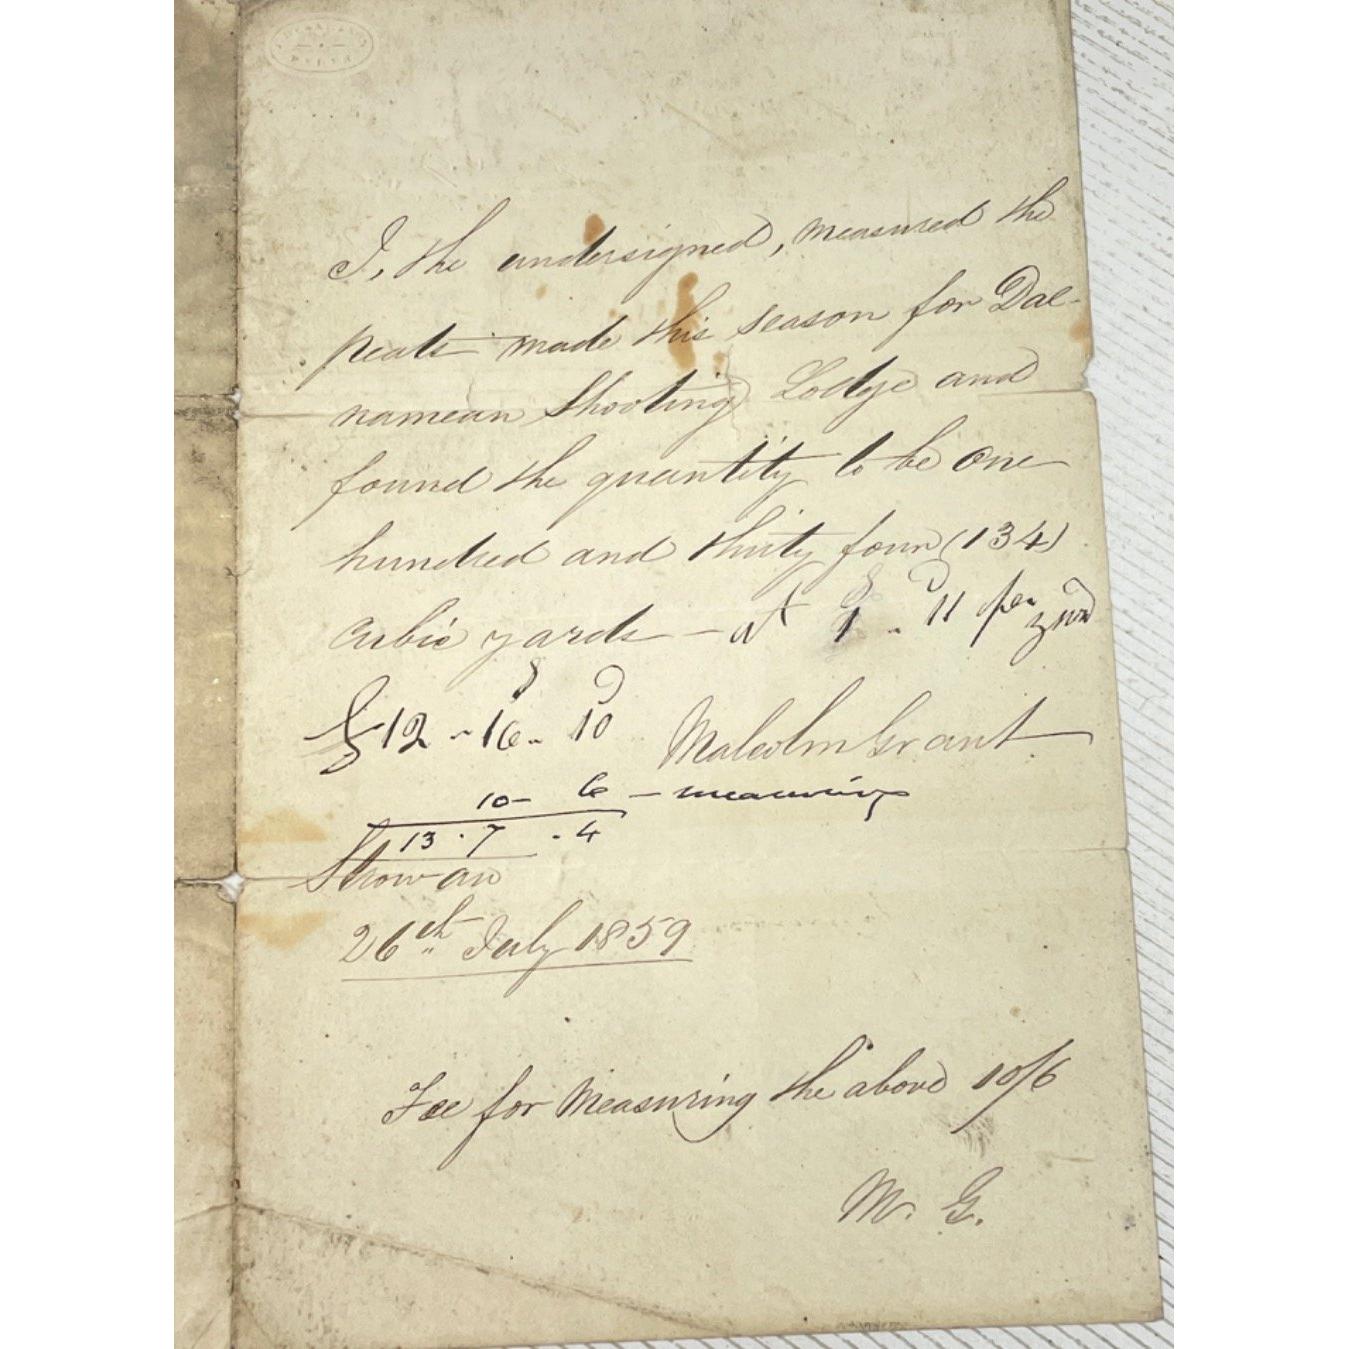 I, the undersigned, measured the
peats made this season for Dal-
namean Shooting Lodge and
found the quantity to be one
hundred and thirty four (134)
Cubic yards – at 1 s - 11 D per yard
£12 - 16 s - 10 D Malcolm Grant
10 - 6 – measuring
13 . 7 . 4
Strowan
26th July 1859
Fee for Measuring the above 10/6
M. G.